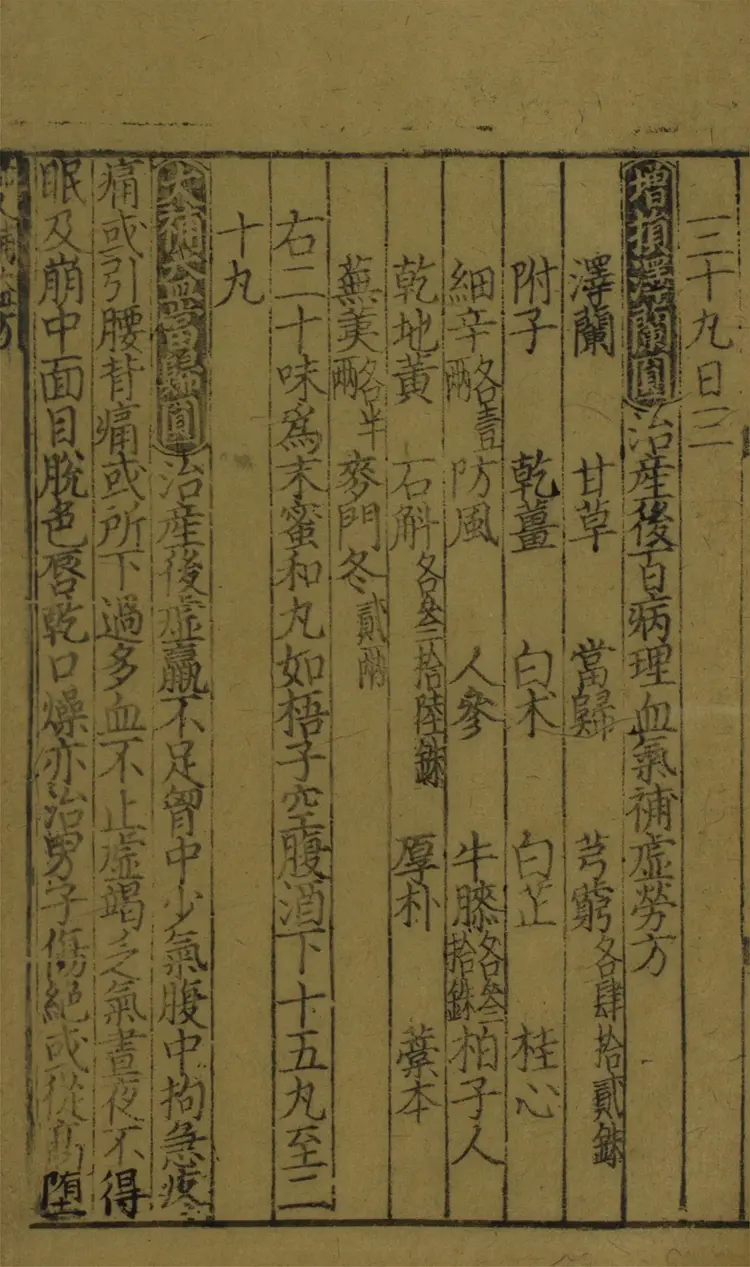 三十丸日三
增損澤蘭圓治產後百病理血氣補虛勞方
澤蘭 甘草 當歸 芎藭各肆拾貳銖
附子 乾薑 白朮 白芷 桂心
細辛各壹兩 防風 人參 牛膝各叄拾銖 柏子人
乾地黃 石斛各叄拾陸銖 厚朴 藁本
蕪荑各半兩 麥門冬貳兩
右二十味爲末蜜和丸如梧子空腹酒下十五丸至二
十丸
大補益當歸圓治產後虛羸不足胷中少氣腹中拘急疼
痛或引腰背痛或所下過多血不止虛竭乏氣晝夜不得
眠及崩中面目脫色唇乾口燥亦治男子傷絕或從高墮